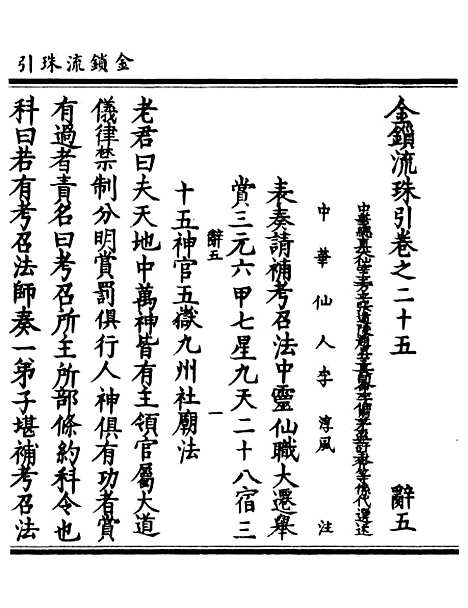 金鎖流珠引
金鎖流珠引卷之二十五　辭五
中華仙人李淳風　注
表奏請補考召法中靈仙職大遷舉
賞三元六甲七星九天二十八宿三
辭五　一
十五神官五嶽九州社廟法
老君曰夫天地中萬神皆有主領官屬大道
儀律禁制分明賞罰俱行人神俱有功者賞
有過者責名曰考召所主所部條約科令也
科曰若有考召法師奏一弟子堪補考召法